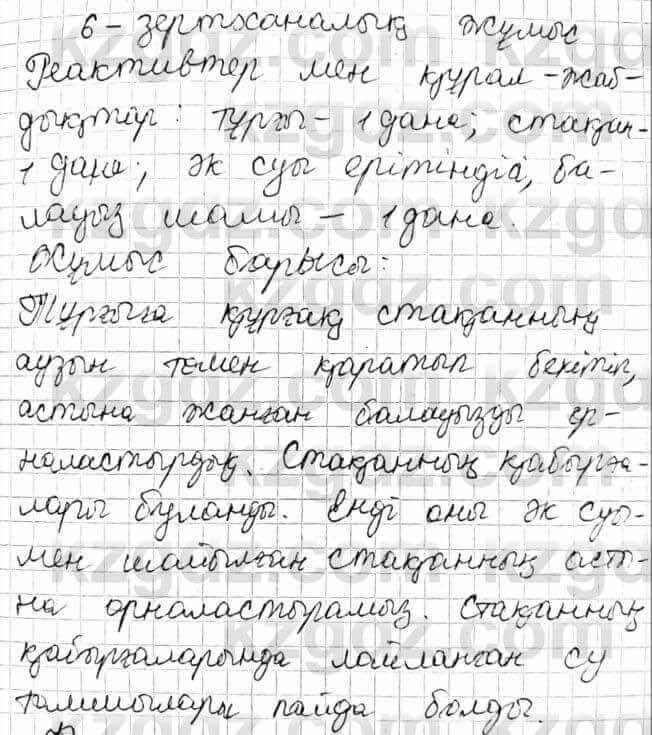 6 - зертханалық жұмыс
Реактивтер мен құрал-жаб-
дықтар: тұрғы - 1 дана; стақан-
1 дана; әк суы ерітіндісі, ба-
лауыз шамы - 1 дана.
Жұмыс барысы:
Тұрғыға құрғақ стақанның
аузын төмен қаратып бекітіп,
астына жанған балауызды ор-
наластырдық. Стақанның қабырға-
лары буланды. Енді оны әк суы-
мен шайылған стақанның асты-
на орналастырамыз. Стақанның
қабырғаларында лайланған су
тамшылары пайда болды.